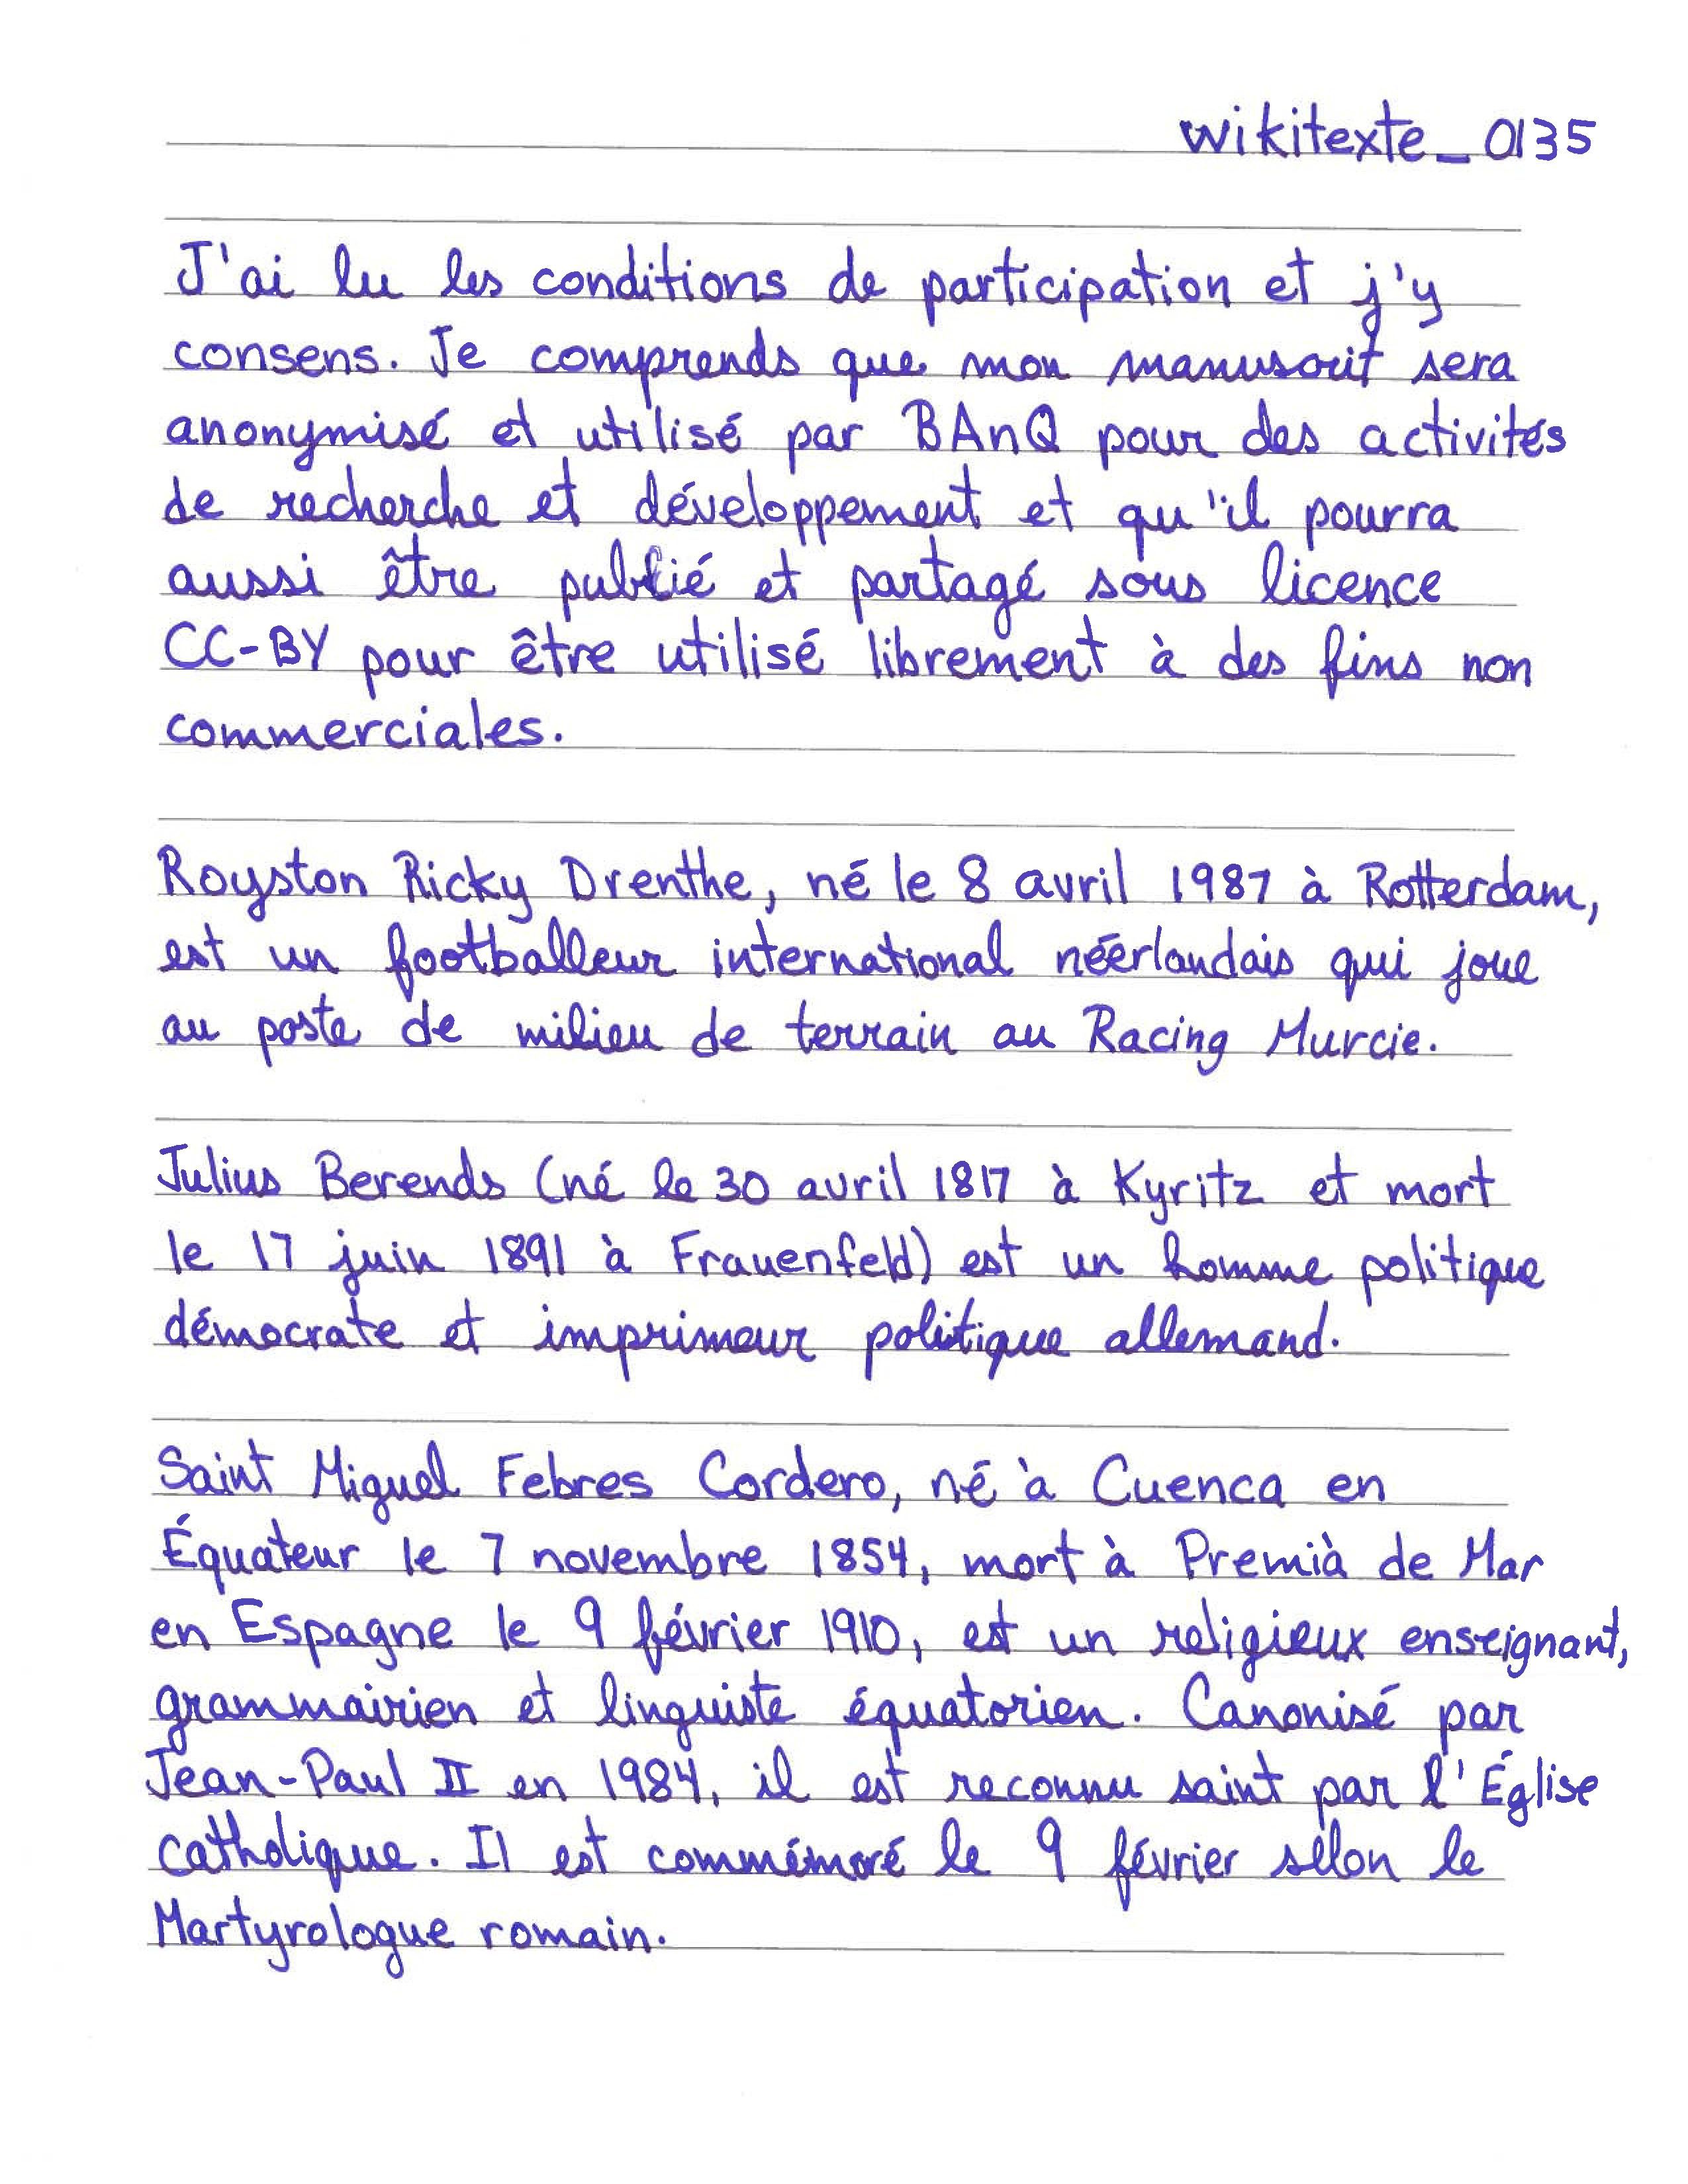 wikitexte_0135
J'ai lu les conditions de participation et j'y
consens. Je comprends que mon manuscrit sera
anonymisé et utilisé par BAnQ pour des activités
de recherche et développement et qu'il pourra
aussi être publié et partagé sous licence
CC-BY pour être utilisé librement à des fins non
commerciales.
Royston Ricky Drenthe, né le 8 avril 1987 à Rotterdam,
est un footballeur international néerlandais qui joue
au poste de milieu de terrain au Racing Murcie.
Julius Berends (né le 30 avril 1817 à Kyritz et mort
le 17 juin 1891 à Frauenfeld) est un homme politique
démocrate et imprimeur politique allemand.
Saint Miguel Febres Cordero, né à Cuenca en
Équateur le 7 novembre 1854, mort à Premià de Mar
en Espagne le 9 février 1910, est un religieux enseignant,
grammairien et linguiste équatorien. Canonisé par
Jean-Paul II en 1984, il est reconnu saint par l'Église
catholique. Il est commémoré le 9 février sélon le
Martyrologue romain.